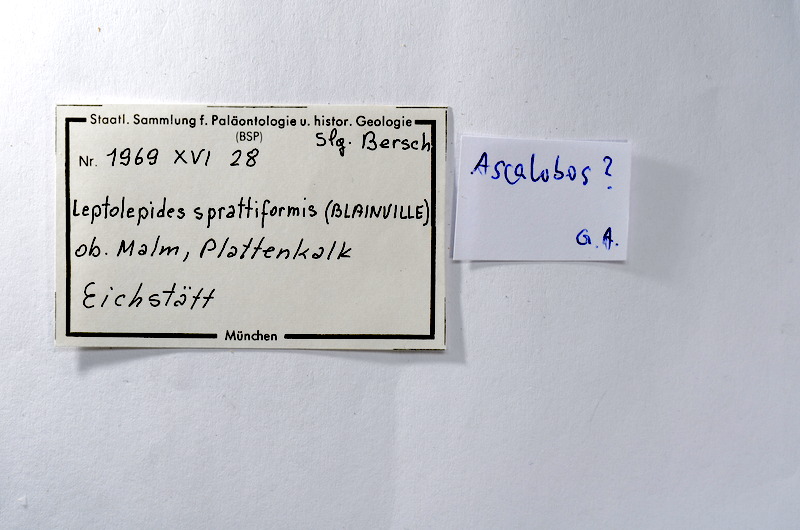 Staatl. Sammlung f. Paläontologie u. histor. Geologie
(BSP)
Slg. Bersch
Nr. 1969 XVI 28
Leptolepides sprattiformis (BLAINVILLE)
ob. Malm, Plattenkalk
Eichstätt
München
Ascalobos?
G. A.